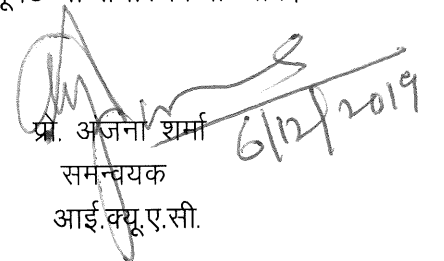 6/12/2019
प्रो. अंजना शर्मा
समन्वयक
आई.क्यू.ए.सी.